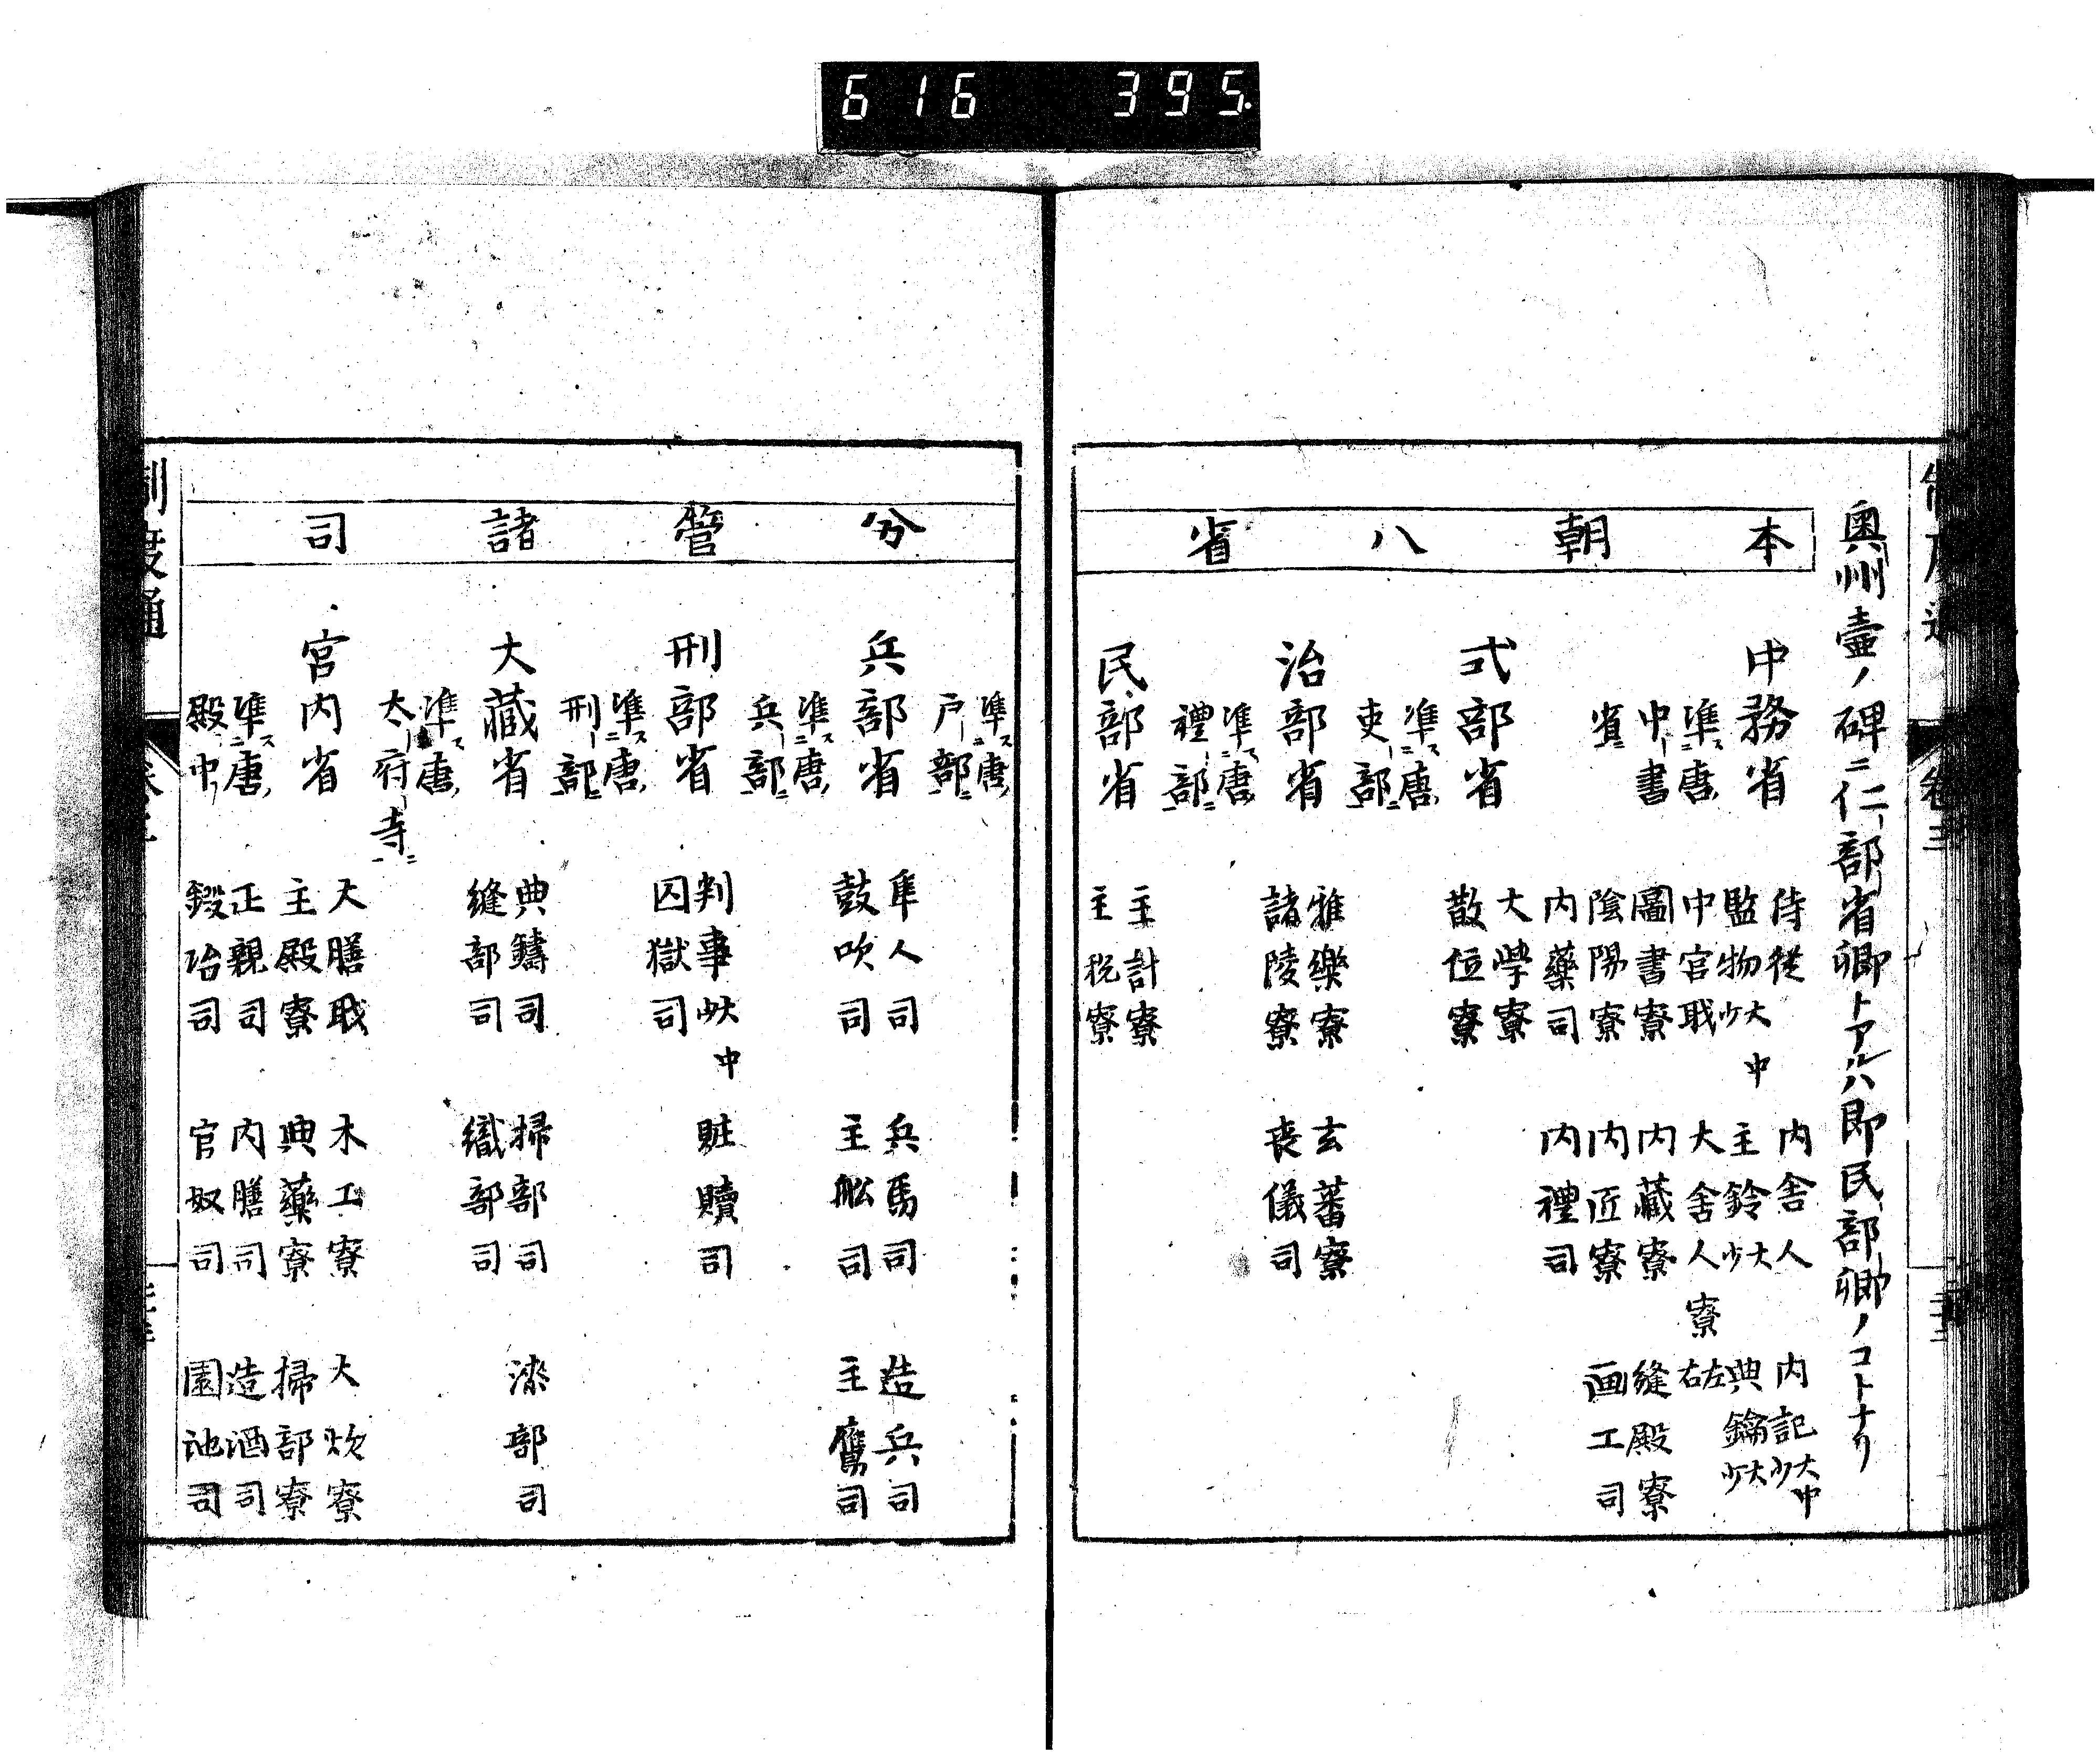 616 395.
奥州壷ノ碑ニ仁部省卿トアルハ即民部卿ノコトナリ
本朝八省
中務省
準スルニ唐ノ中書省ニ
侍従 内舎人 内記大中少
監物大中少 主鈴大少 典鑰大少
中宮職 大舎人寮左右
圖書寮 内藏寮 縫殿寮
陰陽寮 内匠寮 画工司
内藥司 内禮司
式部省
準スルニ唐ノ吏部ニ
大學寮
散位寮
治部省
準スルニ唐ノ禮部ニ
雅樂寮 玄蕃寮
諸陵寮 喪儀司
民部省
主計寮
主税寮
分管諸司
準スルニ唐ノ戸部ニ
兵部省
準スルニ唐ノ兵部ニ
隼人司 兵馬司 造兵司
鼓吹司 主舩司 主鷹司
刑部省
準スルニ唐ノ刑部ニ
判事大中少 贓贖司
囚獄司
大藏省
準スルニ唐ノ太府寺ニ
典鑄司 掃部司 漆部司
縫部司 織部司
宮内省
準スルニ唐ノ殿中
大膳職 木工寮 大炊寮
主殿寮 典藥寮 掃部寮
正親司 内膳司 造酒司
鍛冶司 官奴司 園池司
制度通